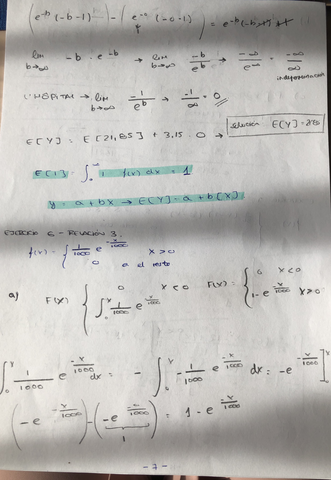 (e^-b (-b-1)) - (e^-0 (-0-1)) = e^-b (-b-1)+1
lim b→∞ -b · e^-b → lim b→∞ -b/e^b → -∞/e^∞ = -∞/∞
L'HOPITAL → lim b→∞ -1/e^b → -1/∞ = 0
E[Y] = E[21,85] + 3,15 · 0 → solución E[Y]=
E[1] = ∫ 1 f(x) dx = 1
y = a + bx → E[Y] = a + b[x]
EJERCICIO 6 - RELACIÓN 3.
f(x) = { 1/1000 e^-x/1000 x>0
0 en el resto
a) F(x) { 0 x<0 F(x) = { 0 x<0
∫ 1/1000 e^-x/1000 1-e^-x/1000 x>0
∫ 1/1000 e^-x/1000 dx = - ∫ -1/1000 e^-x/1000 dx = -e^-x/1000 ]
(-e^-x/1000) - (-e^-0/1000) = 1 - e^-x/1000
1
- 7 -